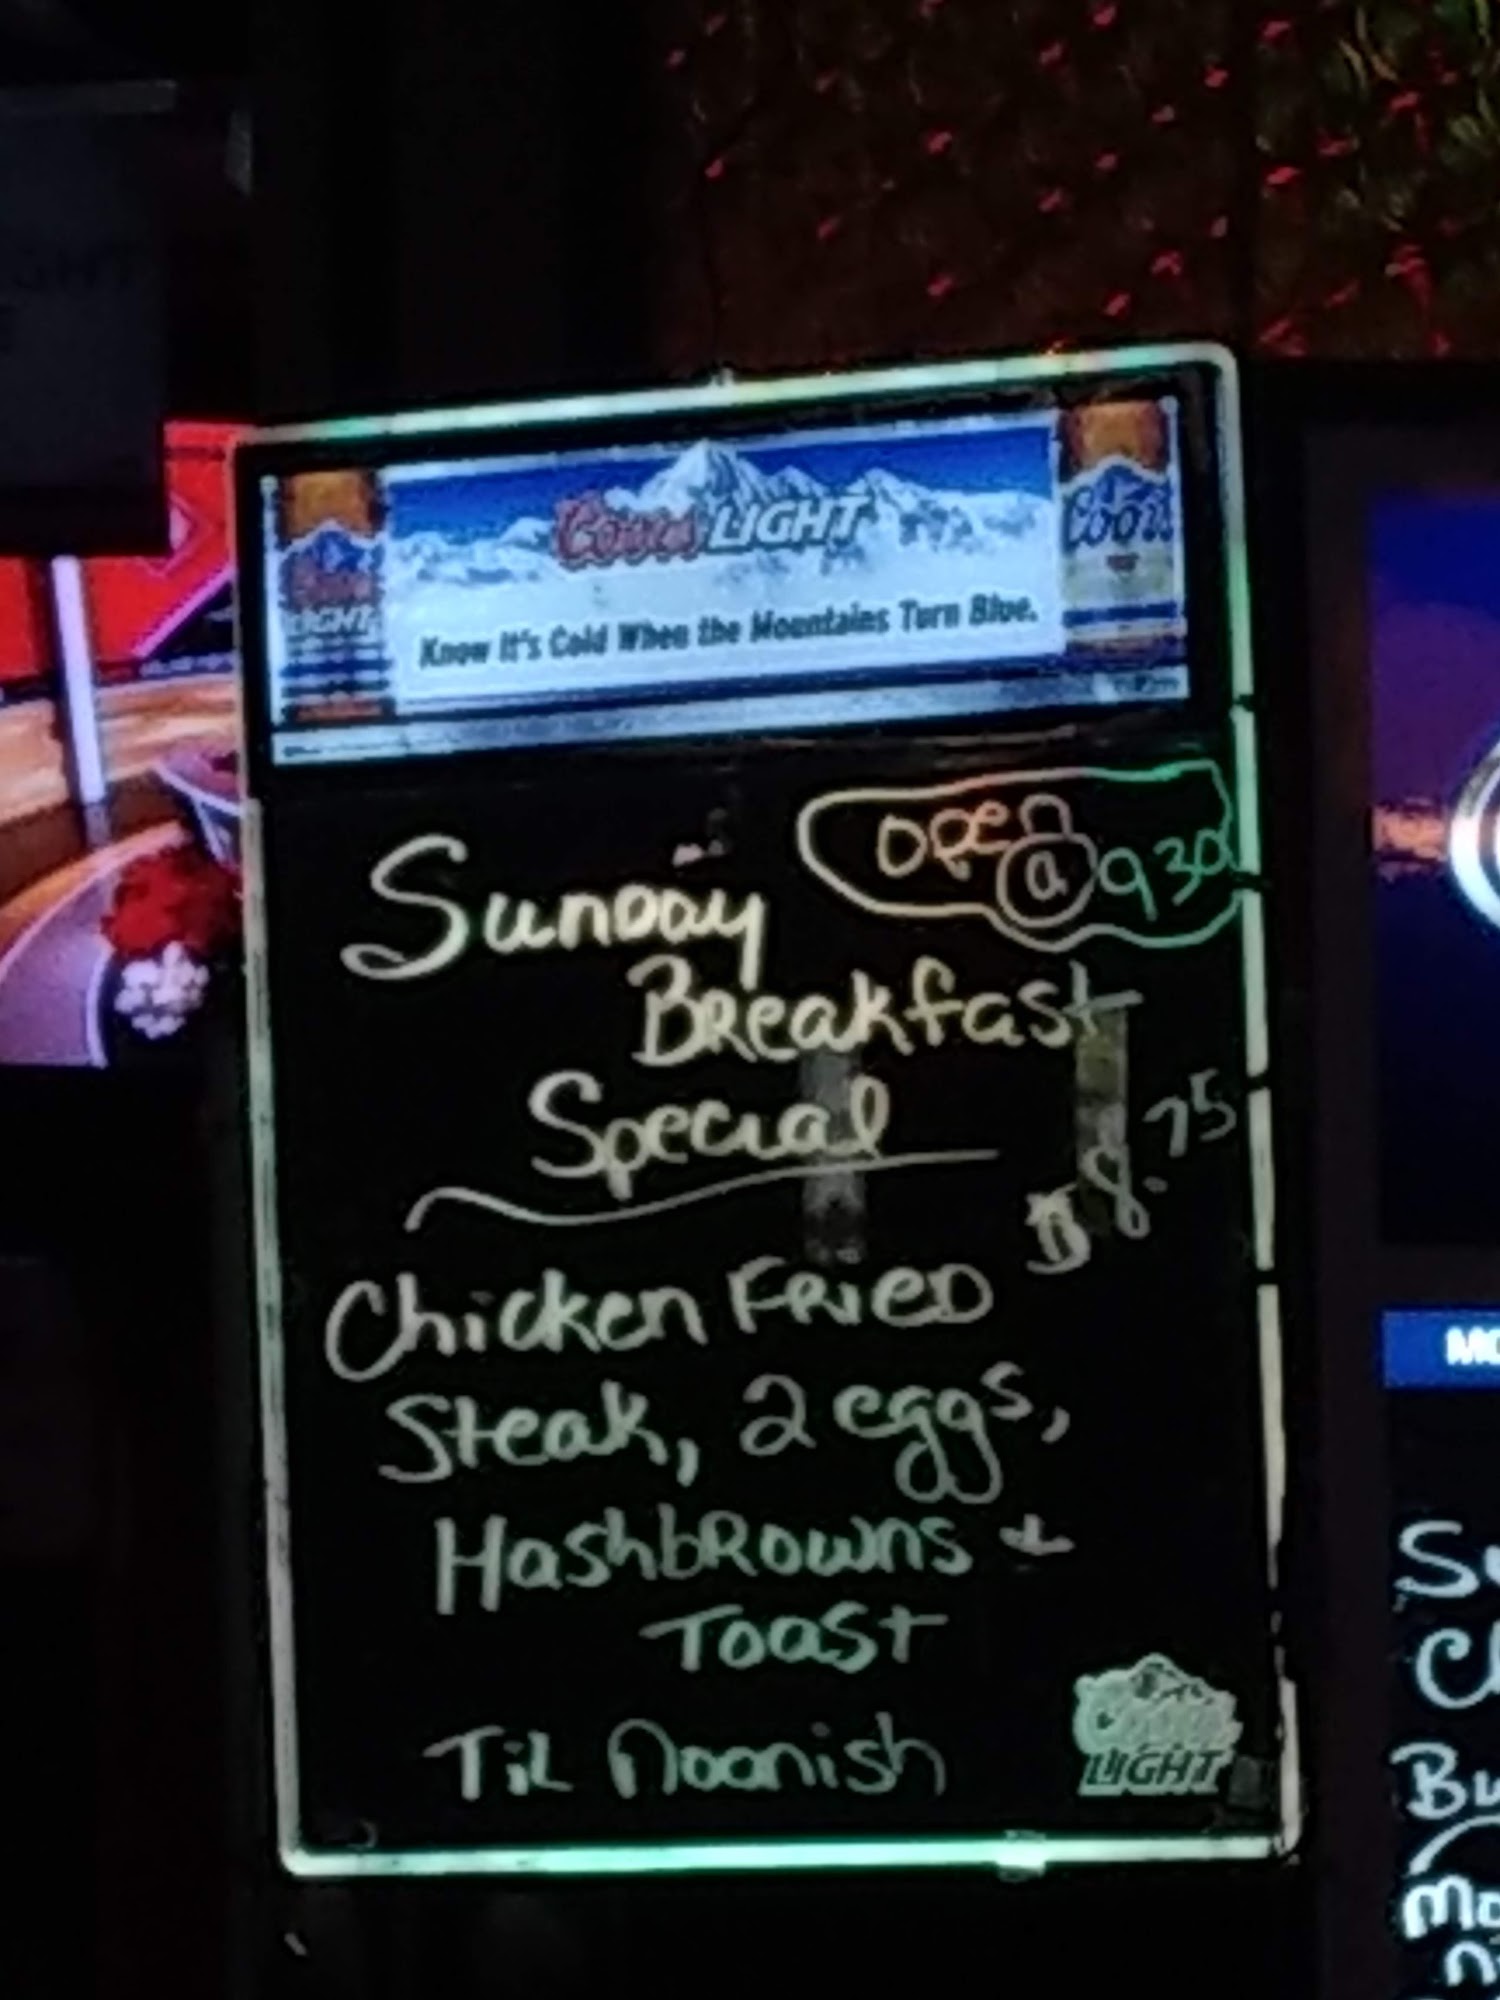 Coors LIGHT
Coors
LIGHT
Coors
Know It's Cold When the Mountains Turn Blue.
Open @ 930
Sunday
Breakfast
Special
$8.75
Chicken Fried
Steak, 2 eggs,
Hashbrowns +
Toast
Til Noonish
Coors
LIGHT